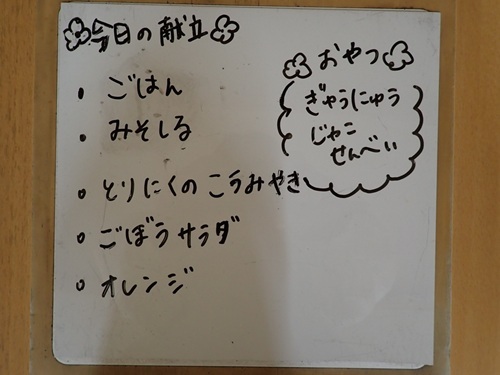 今日の献立
・ごはん
・みそしる
・とりにくのこうみやき
・ごぼうサラダ
・オレンジ
おやつ
ぎゅうにゅう
じゃこ
せんべい